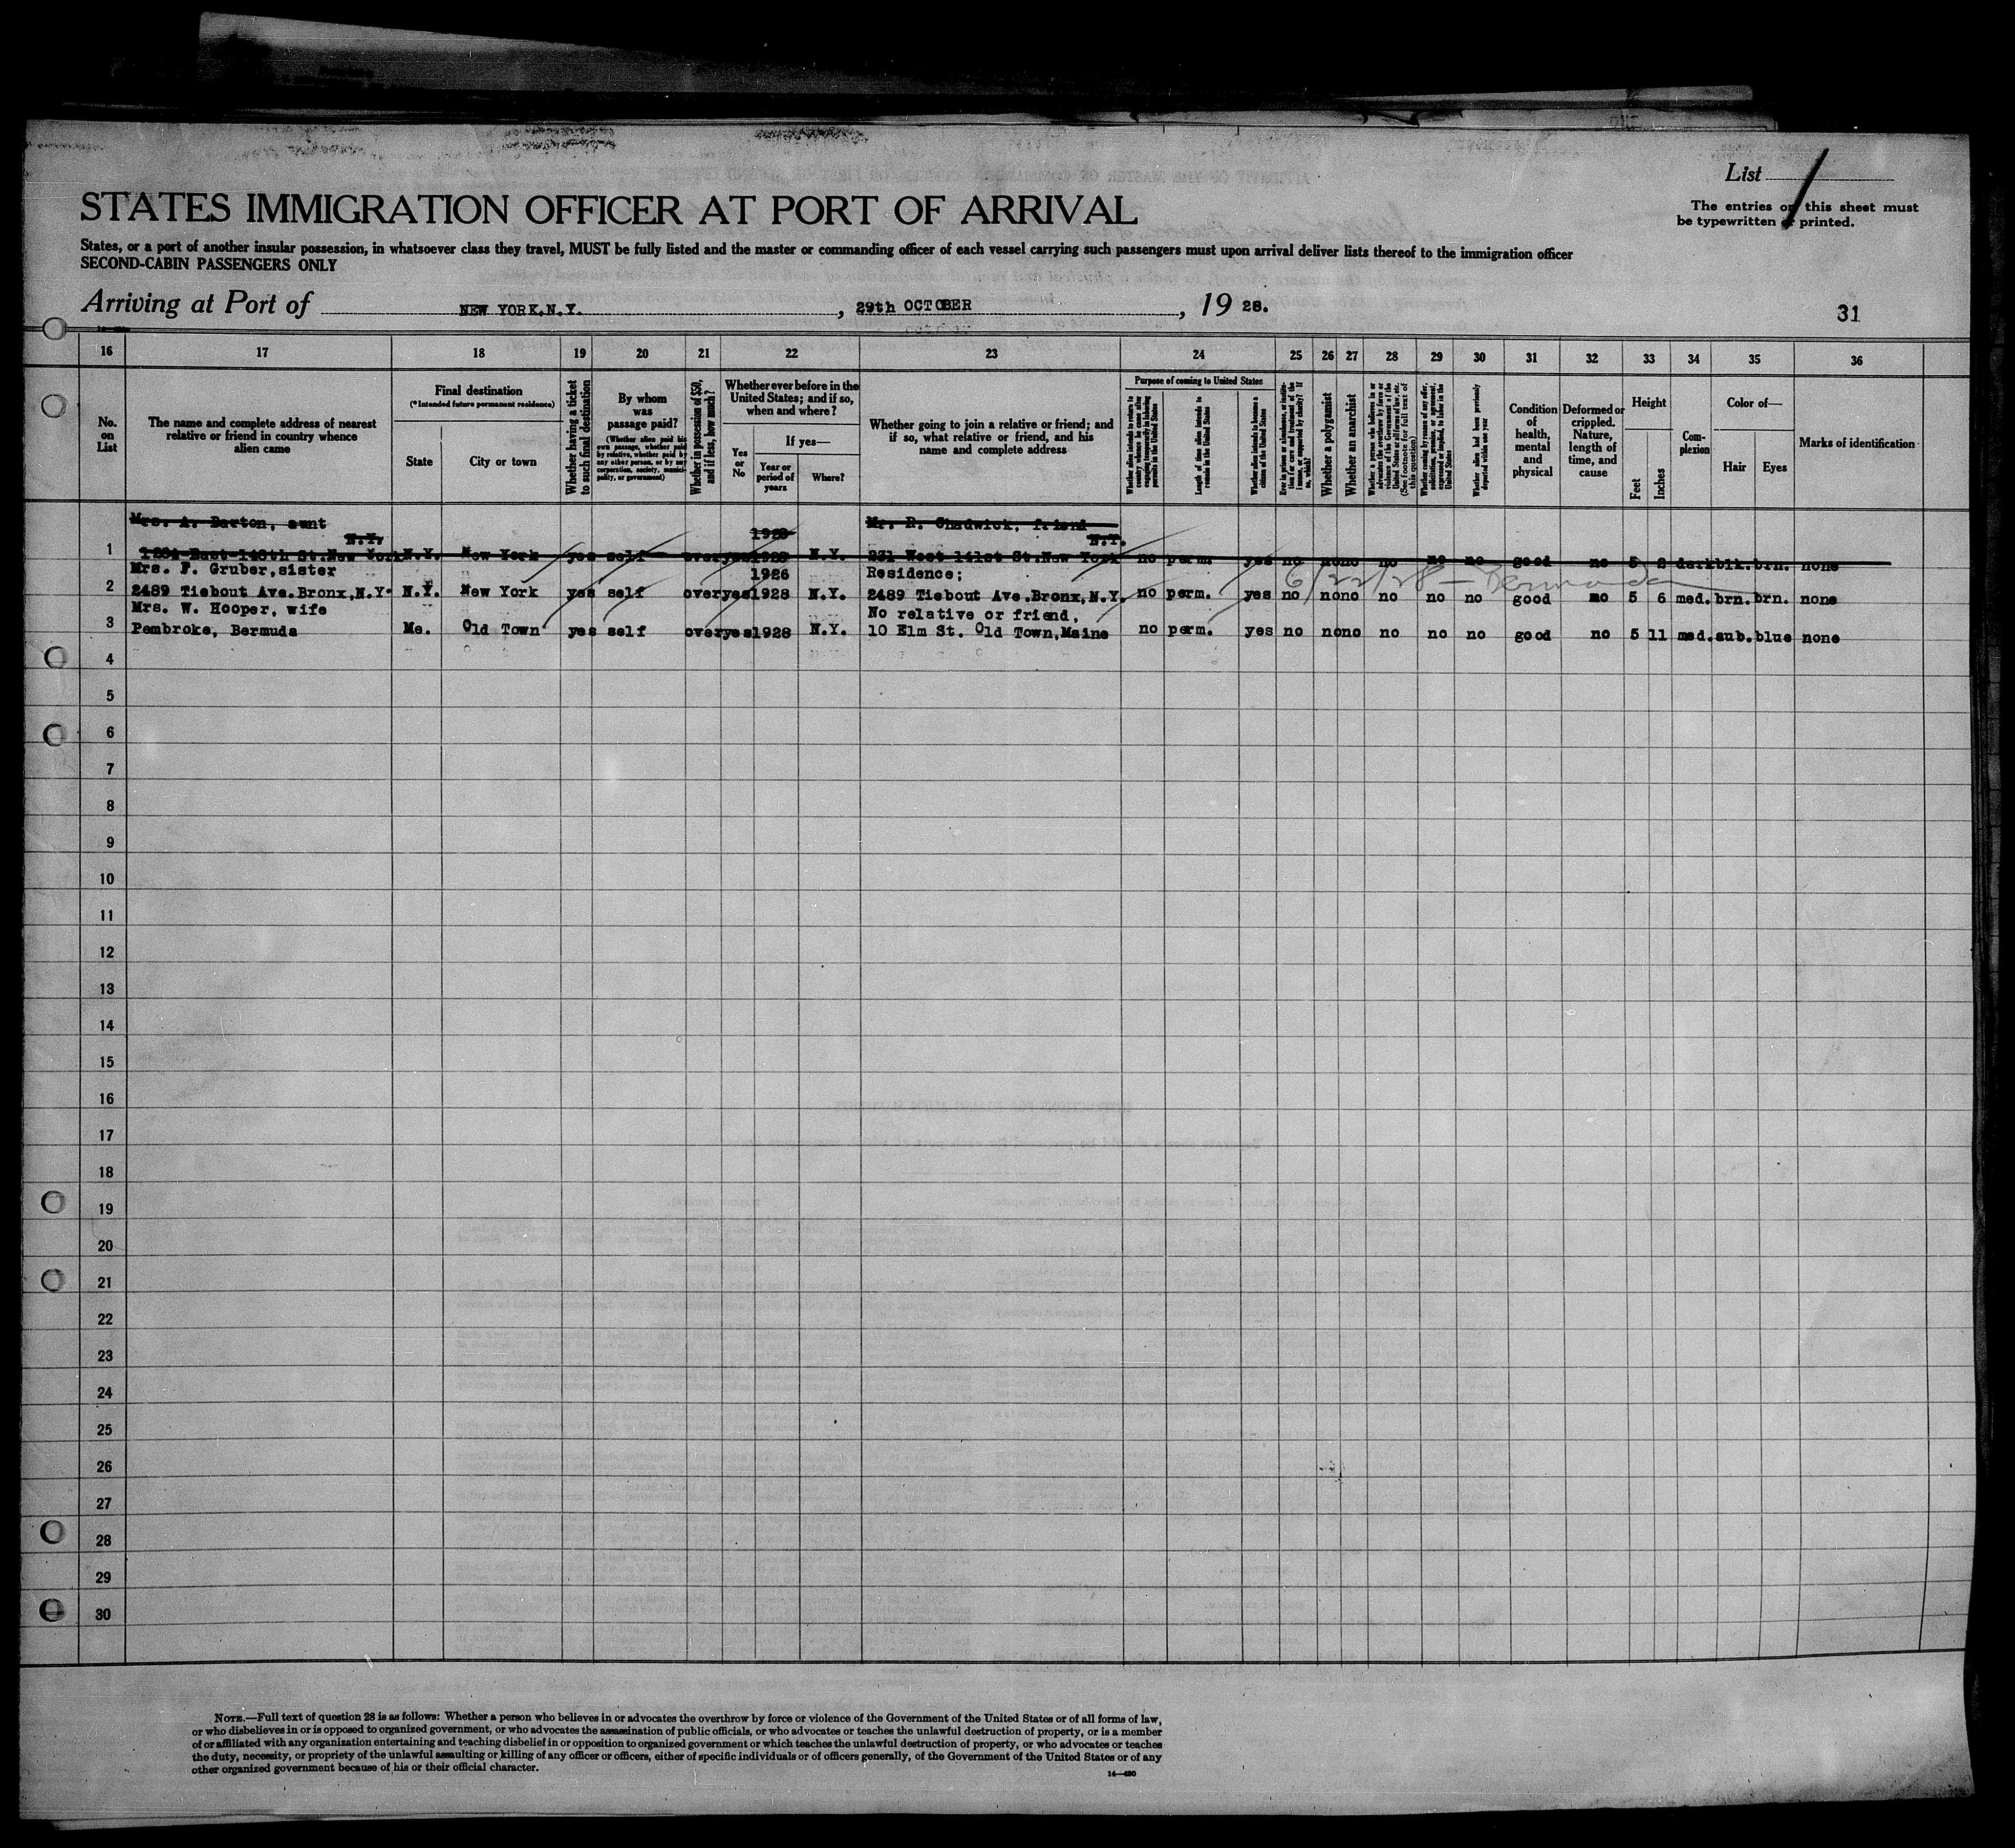 List /
The entries on this sheet must
be typewritten or printed.
STATES IMMIGRATION OFFICER AT PORT OF ARRIVAL
States, or a port of another insular possession, in whatsoever class they travel, MUST be fully listed and the master or commanding officer of each vessel carrying such passengers must upon arrival deliver lists thereof to the immigration officer
SECOND-CABIN PASSENGERS ONLY
Arriving at Port of NEW YORK,N.Y. , 29th OCTOBER , 19 28.
31
16 17 18 19 20 21 22 23 24 25 26 27 28 29 30 31 32 33 34 35 36
No. on List
The name and complete address of nearest relative or friend in country whence alien came
Final destination
(*Intended future permanent residence)
State
City or town
Whether having a ticket to such final destination
By whom was passage paid?
(Whether alien paid his own passage, whether paid by relative, whether paid by any other person, or by any corporation, society, municipality, or government)
Whether in possession of $50, and if less, how much?
Whether ever before in the United States; and if so, when and where?
Yes or No
If yes—
Year or period of years
Where?
Whether going to join a relative or friend; and if so, what relative or friend, and his name and complete address
Purpose of coming to United States
Whether alien intends to return to country whence he came after engaging temporarily in laboring pursuits in the United States
Length of time alien intends to remain in the United States
Whether alien intends to become a citizen of the United States
Ever in prison or almshouse, or institution for care and treatment of the insane, or supported by charity? If so, which?
Whether a polygamist
Whether an anarchist
Whether a person who believes in or advocates the overthrow by force or violence of the Government of the United States or all forms of law, etc. (See footnote for full text of this question)
Whether coming by reason of any offer, solicitation, promise, or agreement, expressed or implied, to labor in the United States
Whether alien had been previously deported within one year
Condition of health, mental and physical
Deformed or crippled. Nature, length of time, and cause
Height
Feet
Inches
Complexion
Color of—
Hair
Eyes
Marks of identification
Mrs. A. Barton, aunt Mr. R. Chadwick, friend
N.Y. N.Y.
1 East 148th St.New York N.Y. New York yes self over yes N.Y. 231 West 141st St.New York no perm. yes no no no no no no good no 5 2 dark blk. brn. none
Mrs. F. Gruber,sister 1926 Residence; 6/22/28 - Bermuda
2 2489 Tiebout Ave.Bronx,N.Y. N.Y. New York yes self over yes 1928 N.Y. 2489 Tiebout Ave.Bronx,N.Y. no perm. yes no no no no no no good no 5 6 med. brn. brn. none
Mrs. W. Hooper, wife No relative or friend,
3 Pembroke, Bermuda Me. Old Town yes self over yes 1928 N.Y. 10 Elm St. Old Town,Maine no perm. yes no no no no no no good no 5 11 med. aub. blue none
4
5
6
7
8
9
10
11
12
13
14
15
16
17
18
19
20
21
22
23
24
25
26
27
28
29
30
NOTE.—Full text of question 28 is as follows: Whether a person who believes in or advocates the overthrow by force or violence of the Government of the United States or of all forms of law,
or who disbelieves in or is opposed to organized government, or who advocates the assassination of public officials, or who advocates or teaches the unlawful destruction of property, or is a member
of or affiliated with any organization entertaining and teaching disbelief in or opposition to organized government or which teaches the unlawful destruction of property, or who advocates or teaches
the duty, necessity, or propriety of the unlawful assaulting or killing of any officer or officers, either of specific individuals or of officers generally, of the Government of the United States or of any
other organized government because of his or their official character.
14—430